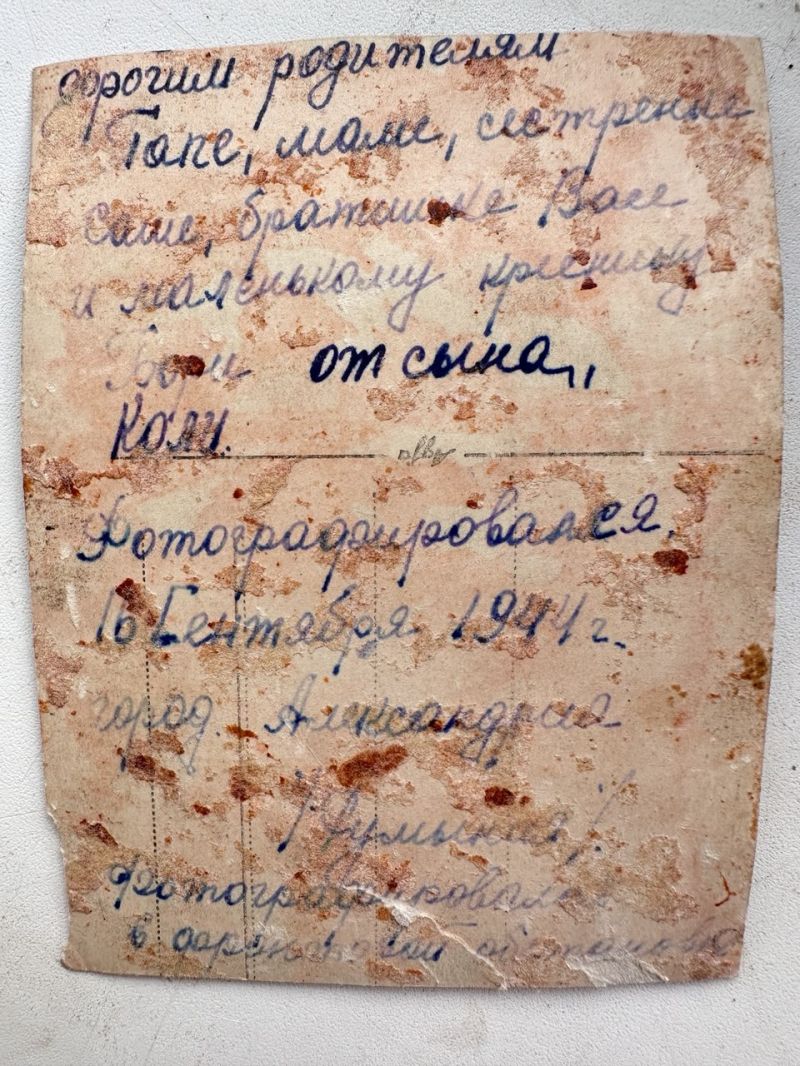 дорогим родителям
Папе, маме, сестренке
Саше, братишке Васе
и маленькому крестнику
Бори от сына,,
Коли.
Фотографировался.
16 Сентября 1944 г.
город. Александрия
/Румыния/.
Фотографировался
в обстановке